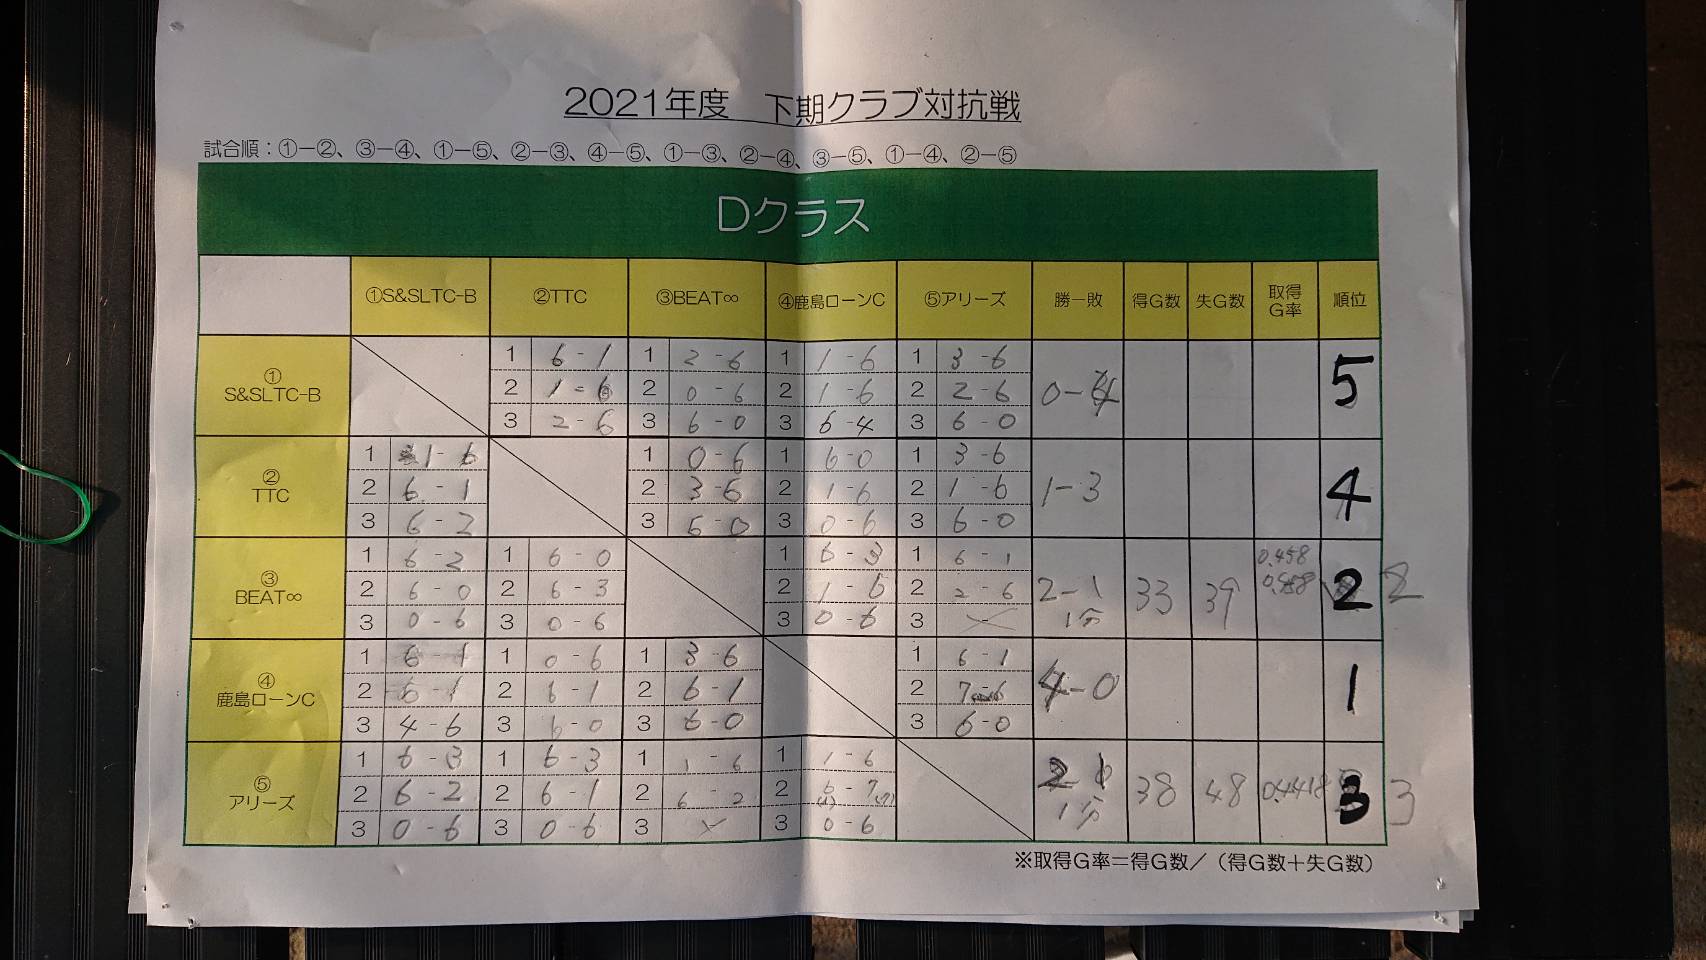 2021年度　下期クラブ対抗戦
試合順：①ー②、③ー④、①ー⑤、②ー③、④ー⑤、①ー③、②ー④、③ー⑤、①ー④、②ー⑤
Dクラス
①S&SLTC-B ②TTC ③BEAT∞ ④鹿島ローンC ⑤アリーズ 勝ー敗 得G数 失G数 取得G率 順位
① S&SLTC-B
1 6-1 1 2-6 1 1-6 1 3-6
2 1-6 2 0-6 2 1-6 2 2-6 0-4 5
3 2-6 3 6-0 3 6-4 3 6-0
② TTC
1 1-6 1 0-6 1 6-0 1 3-6
2 6-1 2 3-6 2 1-6 2 1-6 1-3 4
3 6-2 3 6-0 3 0-6 3 6-0
③ BEAT∞
1 6-2 1 6-0 1 6-3 1 6-1 0.458
2 6-0 2 6-3 2 1-6 2 2-6 2-1 33 39 2 2
3 0-6 3 0-6 3 0-6 3 1分
④ 鹿島ローンC
1 6-1 1 0-6 1 3-6 1 6-1
2 6-1 2 6-1 2 6-1 2 7-6 4-0 1
3 4-6 3 6-0 3 6-0 3 6-0
⑤ アリーズ
1 6-3 1 6-3 1 1-6 1 1-6
2 6-2 2 6-1 2 6-2 2 6-7 2-1 38 48 0.4418 3 3
3 0-6 3 0-6 3 3 0-6 1分
※取得G率＝得G数／（得G数＋失G数）